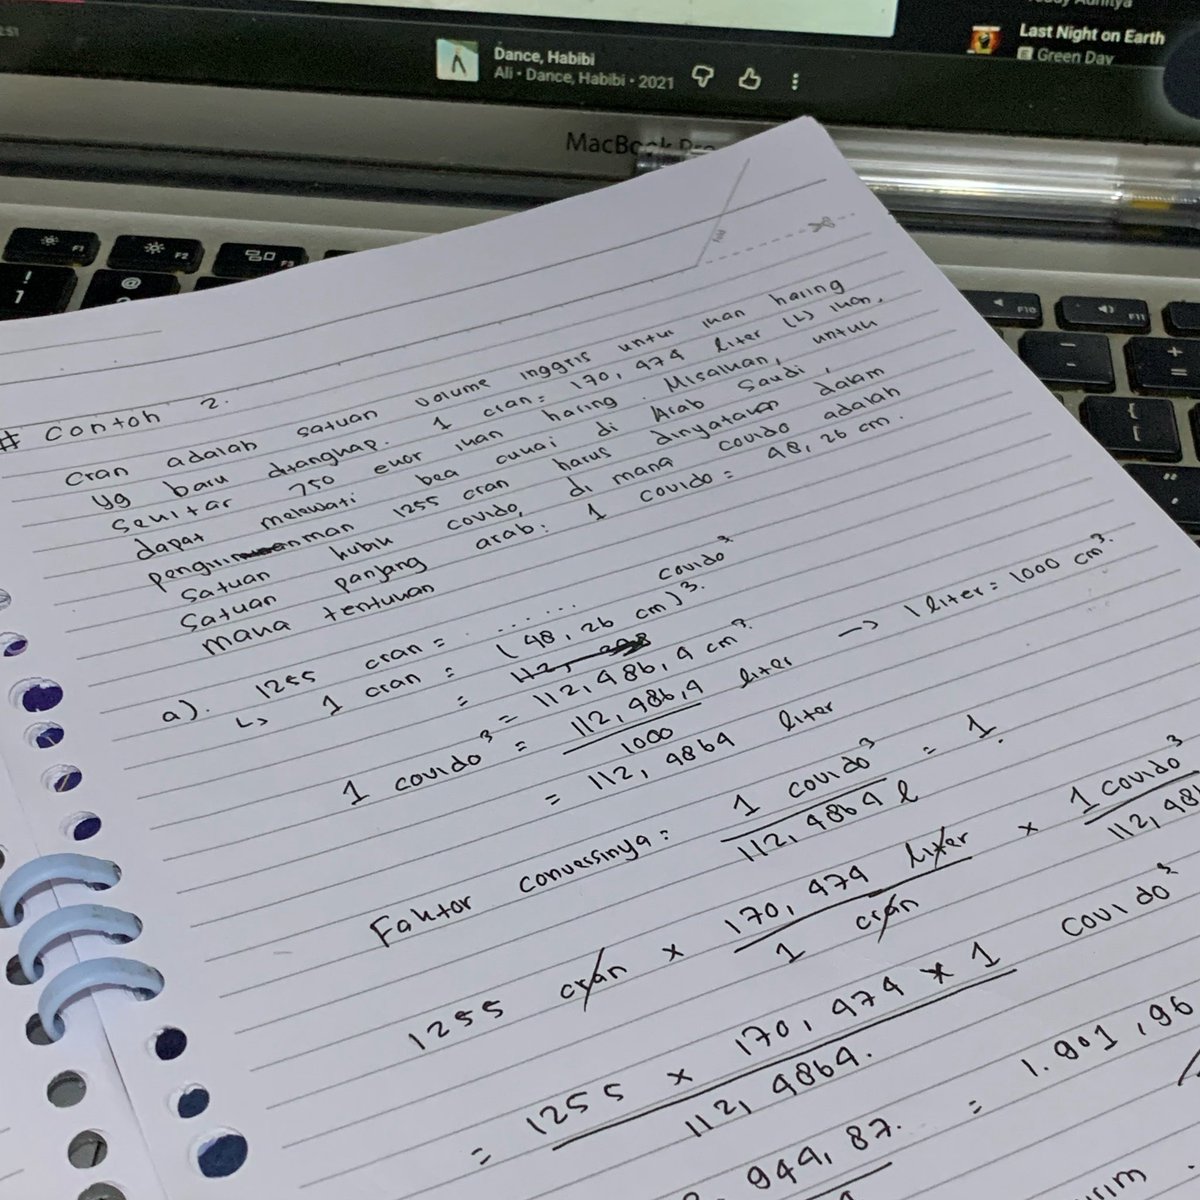 Last Night on Earth
Green Day
Dance, Habibi
Ali • Dance, Habibi • 2021
MacBook Pro
F1
F2
F3
F10
F11
!
1
@
fold
# Contoh 2.
Cran adalah satuan volume inggris untuk ikan haring
yg baru ditangkap. 1 cran = 170,474 liter (L) ikan,
sekitar 750 ekor ikan haring. Misalkan, untuk
dapat melewati bea cukai di Arab Saudi,
pengiriman 1255 cran harus dinyatakan dalam
satuan kubik covido, di mana covido adalah
satuan panjang arab: 1 covido = 48,26 cm.
maka tentukan
a). 1255 cran = ........ covido³
↳ 1 cran = (48,26 cm)³.
=
1 covido³ = 112,486,4 cm³.
= 112,486,4 / 1000 liter → 1 liter = 1000 cm³.
= 112,4864 liter
Faktor conversinya = 1 covido³ / 112,4864 l = 1.
1255 cran × 170,474 liter / 1 cran × 1 covido³ / 112,48
= 1255 × 170,474 × 1 / 112,4864. covido³
944,87. = 1.901,96